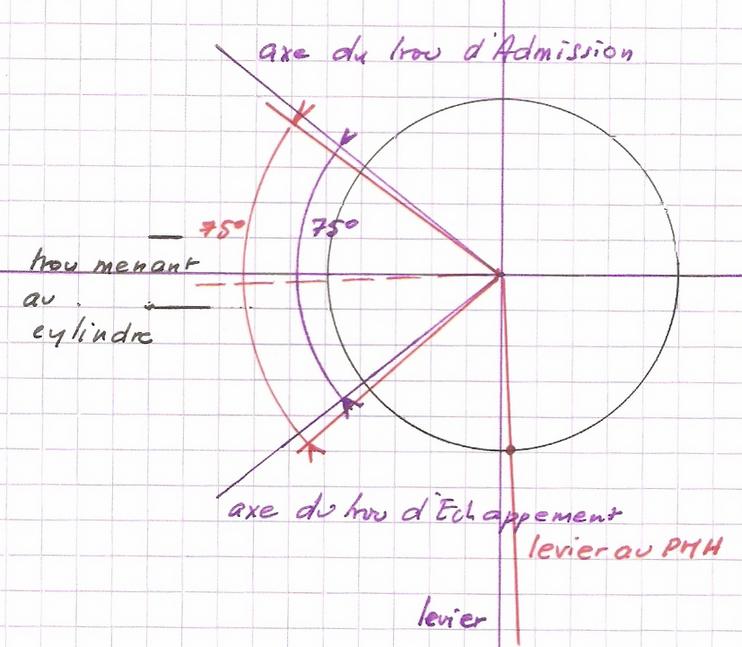 axe du trou d'Admission
75° 75°
trou menant
au
cylindre
axe du trou d'Echappement
levier au PMH
levier